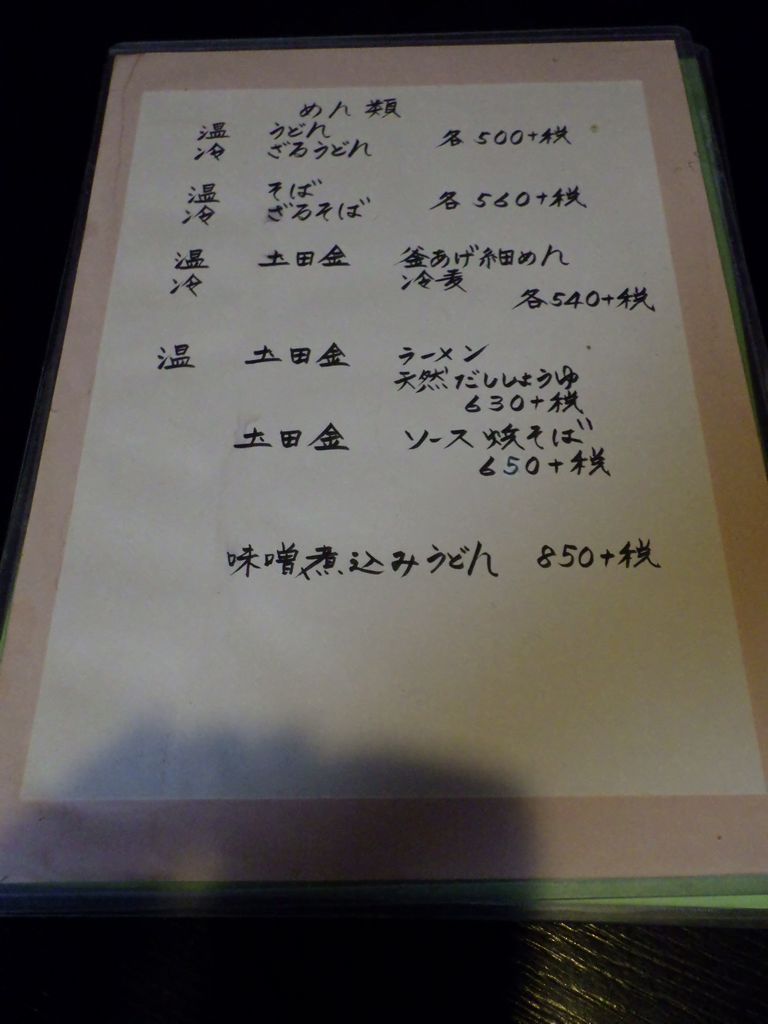 めん類
温 うどん
冷 ざるうどん 各500+税
温 そば
冷 ざるそば 各560+税
温 土田金 釜あげ細めん
冷 冷麦
各540+税
温 土田金 ラーメン
天然だししょうゆ
630+税
土田金 ソース焼そば
650+税
味噌煮込みうどん 850+税